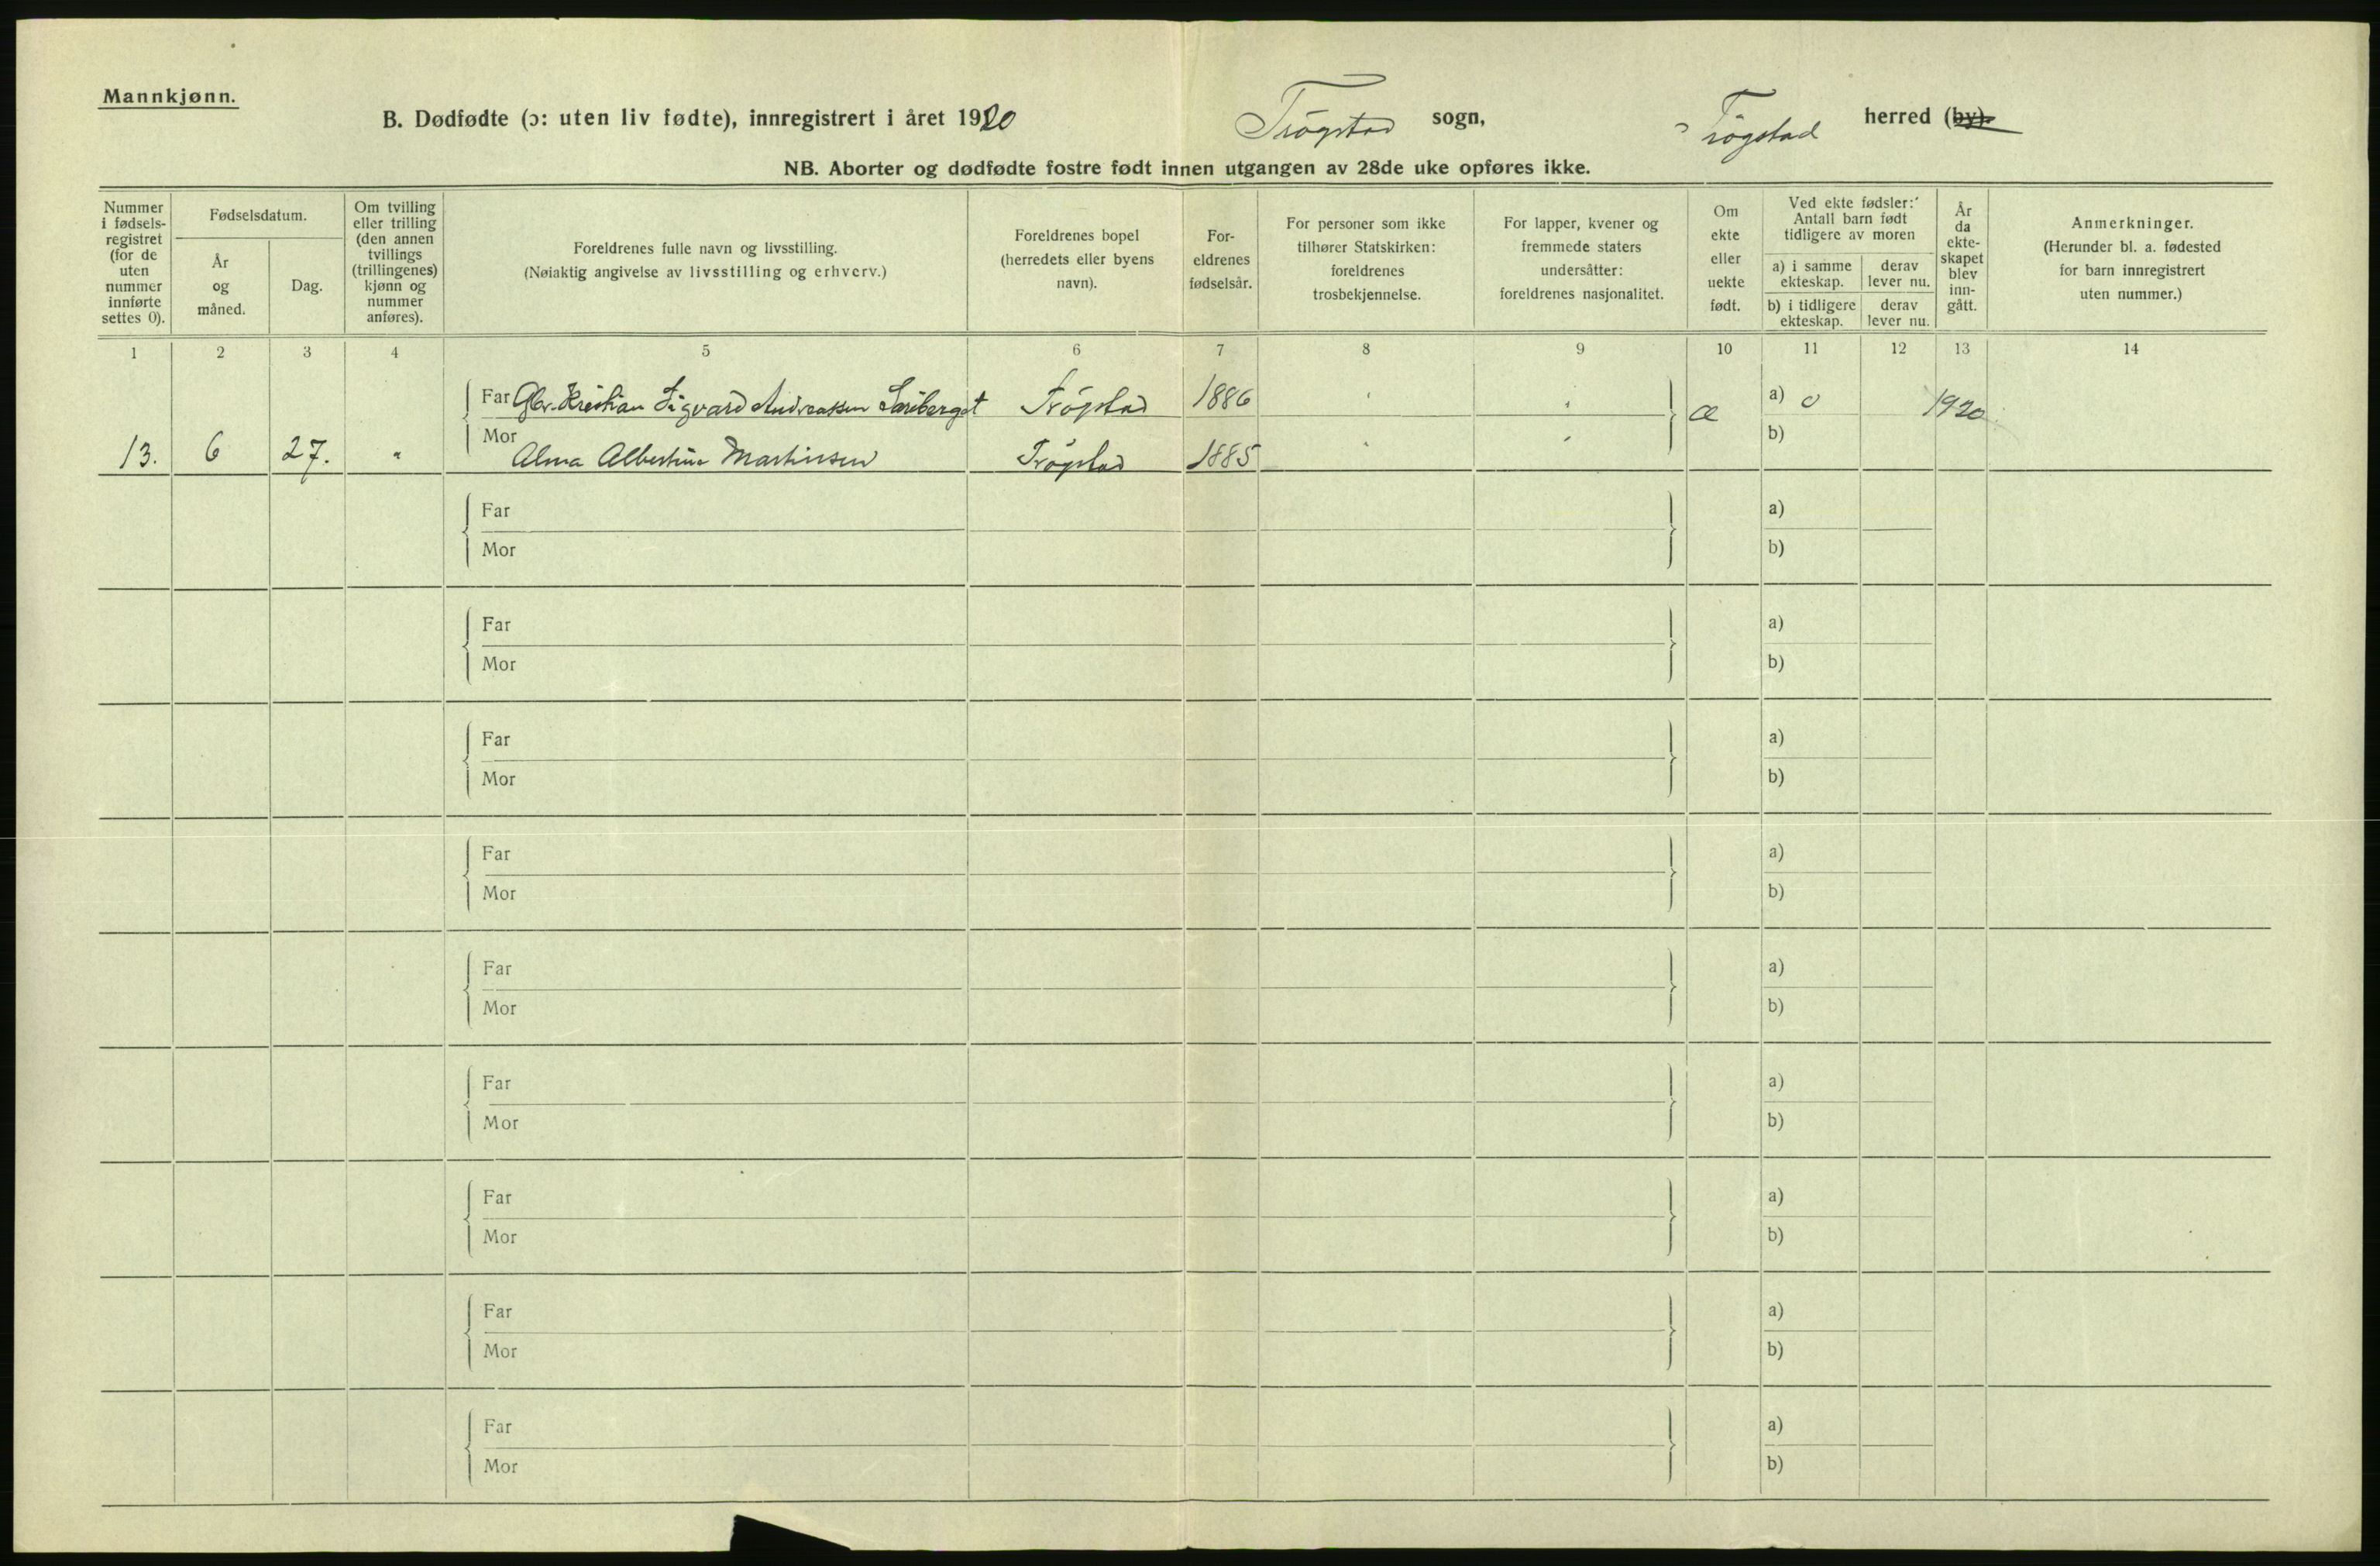 Mannkjønn.
B. Dødfødte (ɔ: uten liv fødte), innregistrert i året 1920 Trøgstad sogn, Trøgstad herred (by).
NB. Aborter og dødfødte fostre født innen utgangen av 28de uke opføres ikke.
Nummer i fødsels-registret (for de uten nummer innførte settes 0).
Fødselsdatum.
År og måned.
Dag.
Om tvilling eller trilling (den annen tvillings (trillingenes) kjønn og nummer anføres).
Foreldrenes fulle navn og livsstilling.
(Nøiaktig angivelse av livsstilling og erhverv.)
Foreldrenes bopel (herredets eller byens navn).
For-eldrenes fødselsår.
For personer som ikke tilhører Statskirken: foreldrenes trosbekjennelse.
For lapper, kvener og fremmede staters undersåtter: foreldrenes nasjonalitet.
Om ekte eller uekte født.
Ved ekte fødsler: Antall barn født tidligere av moren
a) i samme ekteskap.
derav lever nu.
b) i tidligere ekteskap.
derav lever nu.
År da ekte-skapet blev inn-gått.
Anmerkninger.
(Herunder bl. a. fødested for barn innregistrert uten nummer.)
1 2 3 4 5 6 7 8 9 10 11 12 13 14
Far Gbr. Kristian Sigvard Andreassen Trøgstad 1886 Æ a) 0 1920
13. 6 27. " Mor Alma Albertine Martinsen Trøgstad 1885 b)
Far a)
Mor b)
Far a)
Mor b)
Far a)
Mor b)
Far a)
Mor b)
Far a)
Mor b)
Far a)
Mor b)
Far a)
Mor b)
Far a)
Mor b)
Far a)
Mor b)